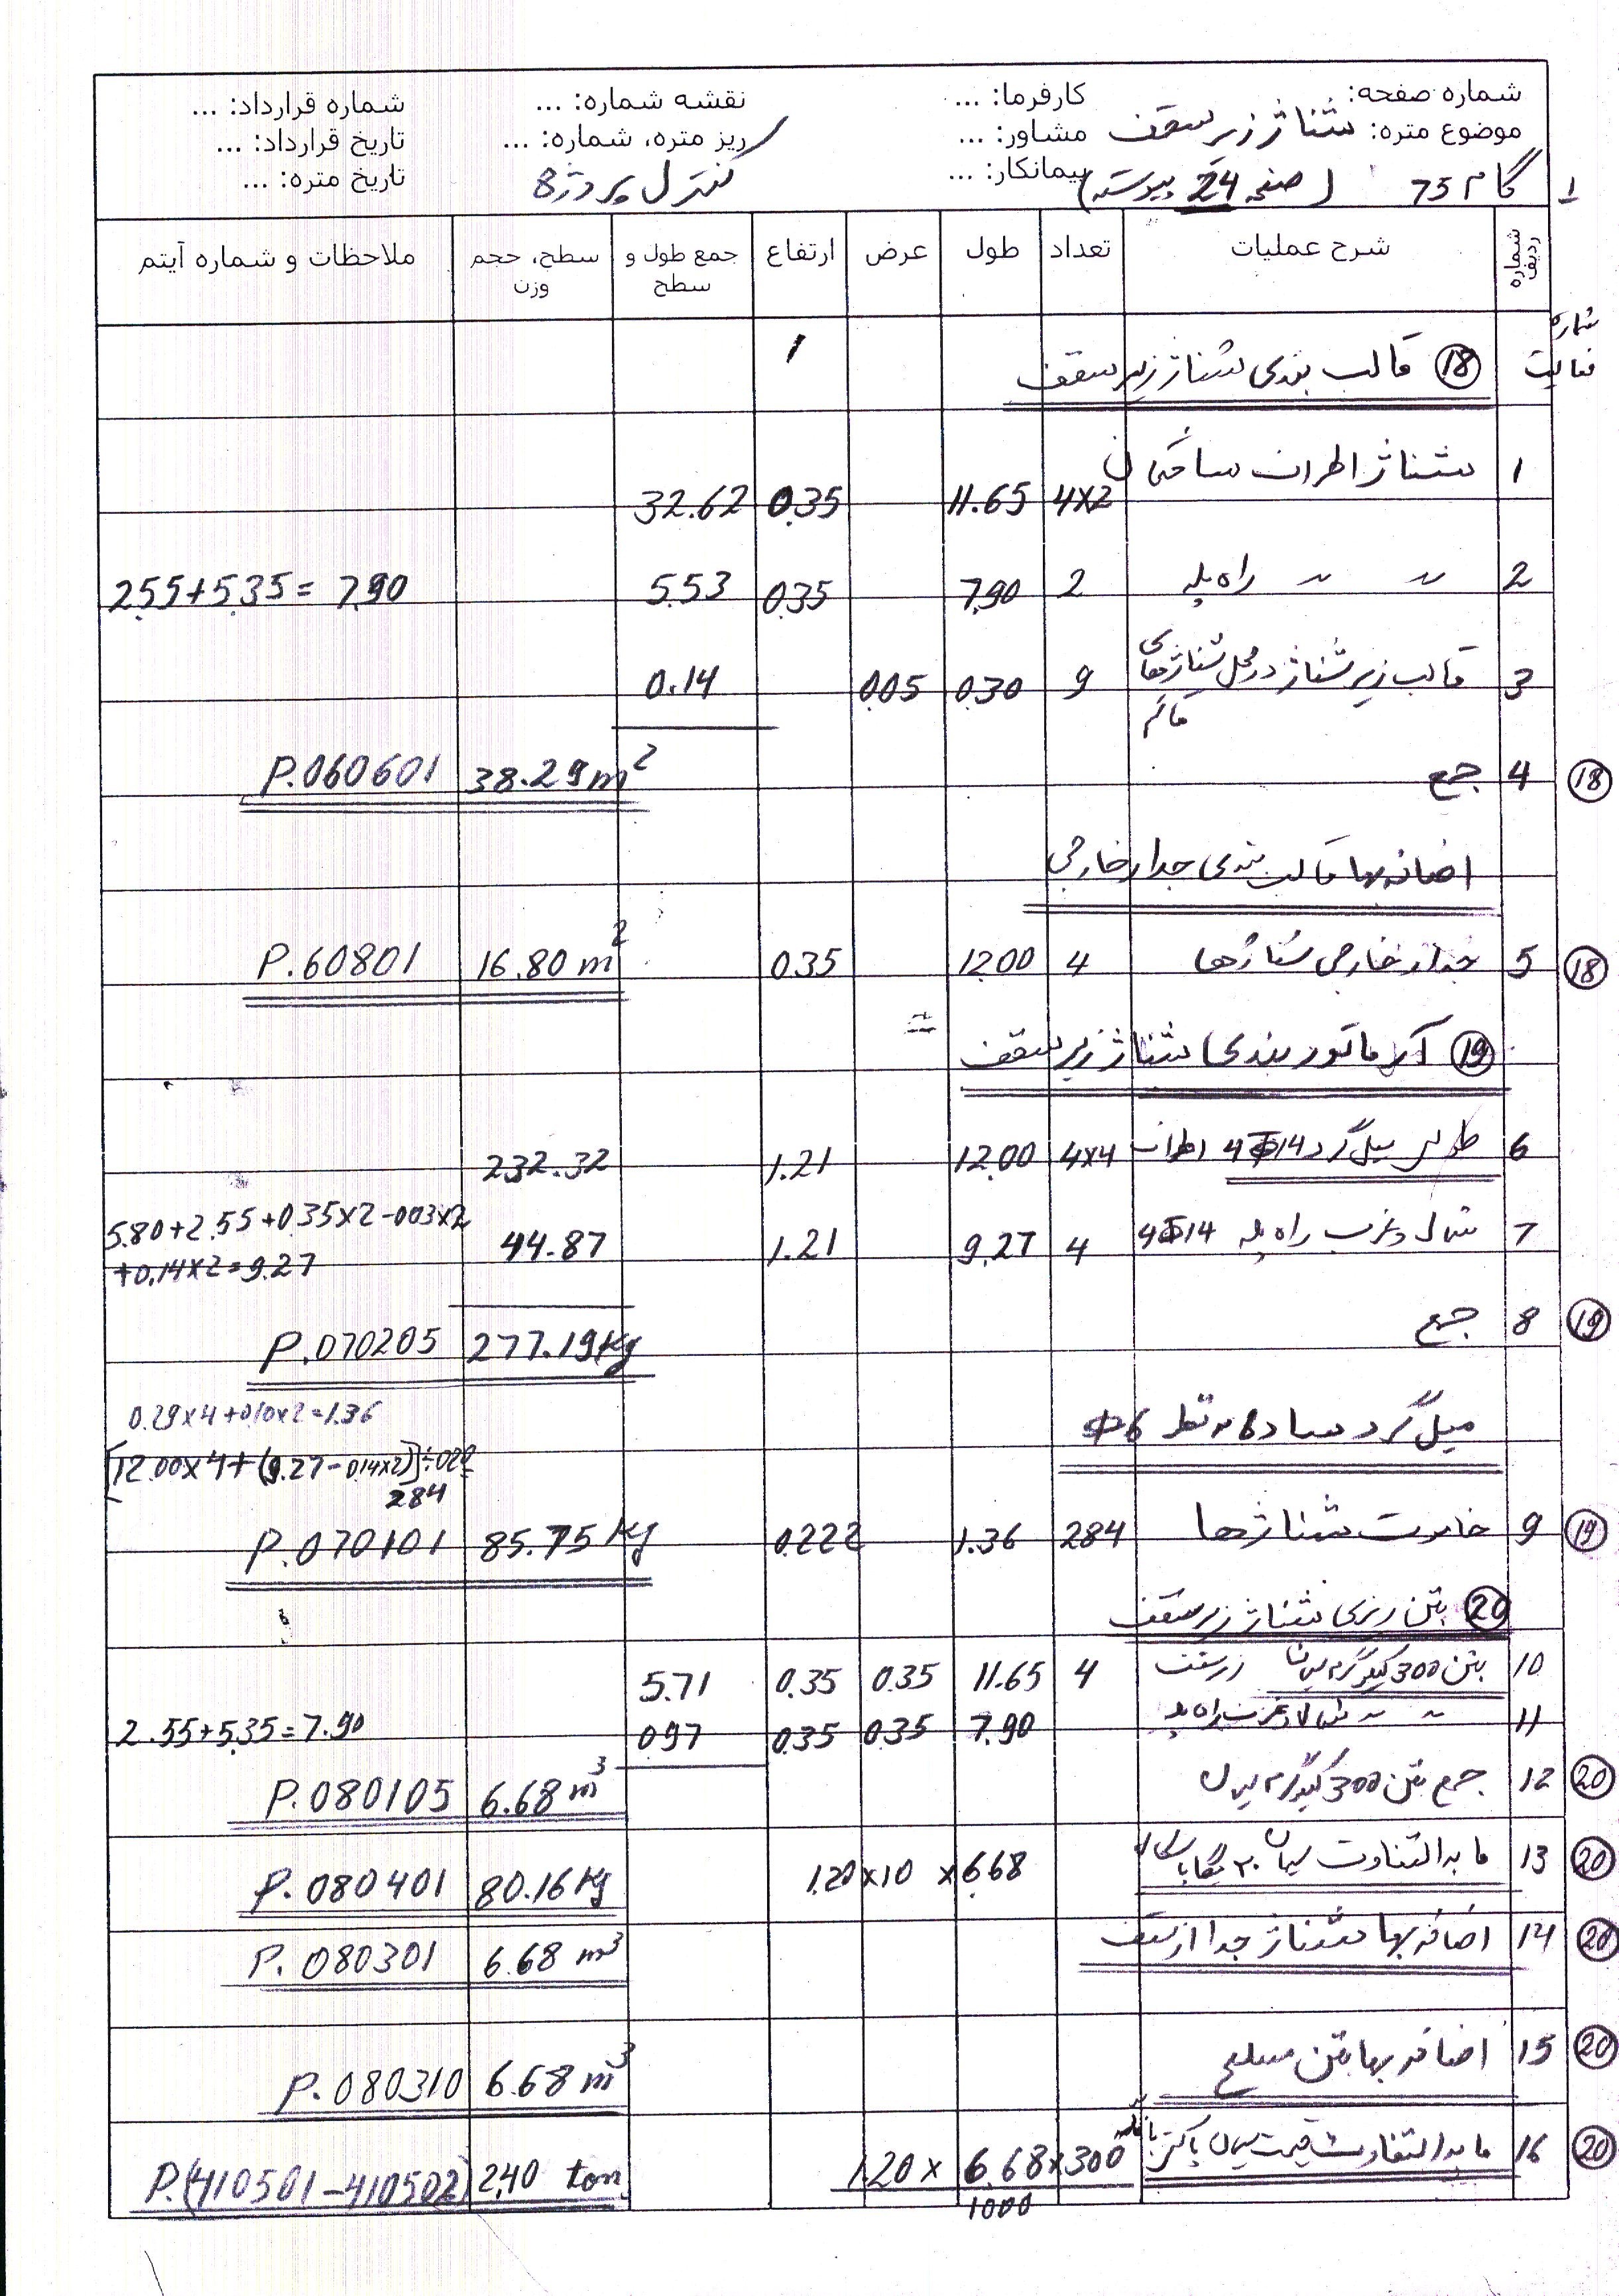 شماره صفحه: کارفرما: ... نقشه شماره: ... شماره قرارداد: ...
موضوع متره: شناژ زیر سقف مشاور: ... ریز متره، شماره: ... تاریخ قرارداد: ...
گام 75 (صفحه 24 پیوسته) پیمانکار: ... کنترل پروژه 8 تاریخ متره: ...
شماره ردیف شرح عملیات تعداد طول عرض ارتفاع جمع طول و سطح سطح، حجم وزن ملاحظات و شماره آیتم
شماره فعالیت
18 قالب بندی شناژ زیر سقف
1 شناژ اطراف ساختمان 4×2 11.65 0.35 32.62
2 〃 〃 راه پله 2 7.90 0.35 5.53 2.55+5.35=7.90
3 قالب زیر شناژ در محل شناژهای قائم 9 0.30 0.05 0.14
18 4 جمع 38.29 m2 P.060601
اضافه بها قالب بندی جدار خارجی
18 5 جدار خارجی شناژها 4 12.00 0.35 16.80 m2 P.60801
19 آرماتور بندی شناژ زیر سقف
6 طولی میل گرد 4Φ14 اطراف 4×4 12.00 1.21 232.32
7 شمال و غرب راه پله 4Φ14 4 9.27 1.21 44.87 5.80+2.55+0.35×2-0.03×2
+0.14×2=9.27
19 8 جمع 277.19 Kg P.070205
0.29×4+0.10×2=1.36
میل گرد ساده به قطر Φ6
[12.00×4+(9.27-0.14×2)]÷0.20=
284
19 9 خاموت شناژها 284 1.36 0.222 85.75 Kg P.070101
20 بتن ریزی شناژ زیر سقف
10 بتن 300 کیلوگرم سیمان زیر سقف 4 11.65 0.35 0.35 5.71
11 〃 〃 شمال و غرب راه پله 7.90 0.35 0.35 0.97 2.55+5.35=7.90
20 12 جمع بتن 300 کیلوگرم سیمان 6.68 m3 P.080105
20 13 مابه التفاوت سیمان 1.20×10×6.68 80.16 Kg P.080401
20 14 اضافه بها شناژ جدا از سقف 6.68 m3 P.080301
20 15 اضافه بها بتن مسلح 6.68 m3 P.080310
20 16 مابه التفاوت قیمت سیمان پاکتی با فله 1.20×6.68×300 2.40 ton P.(410501-410502)
1000